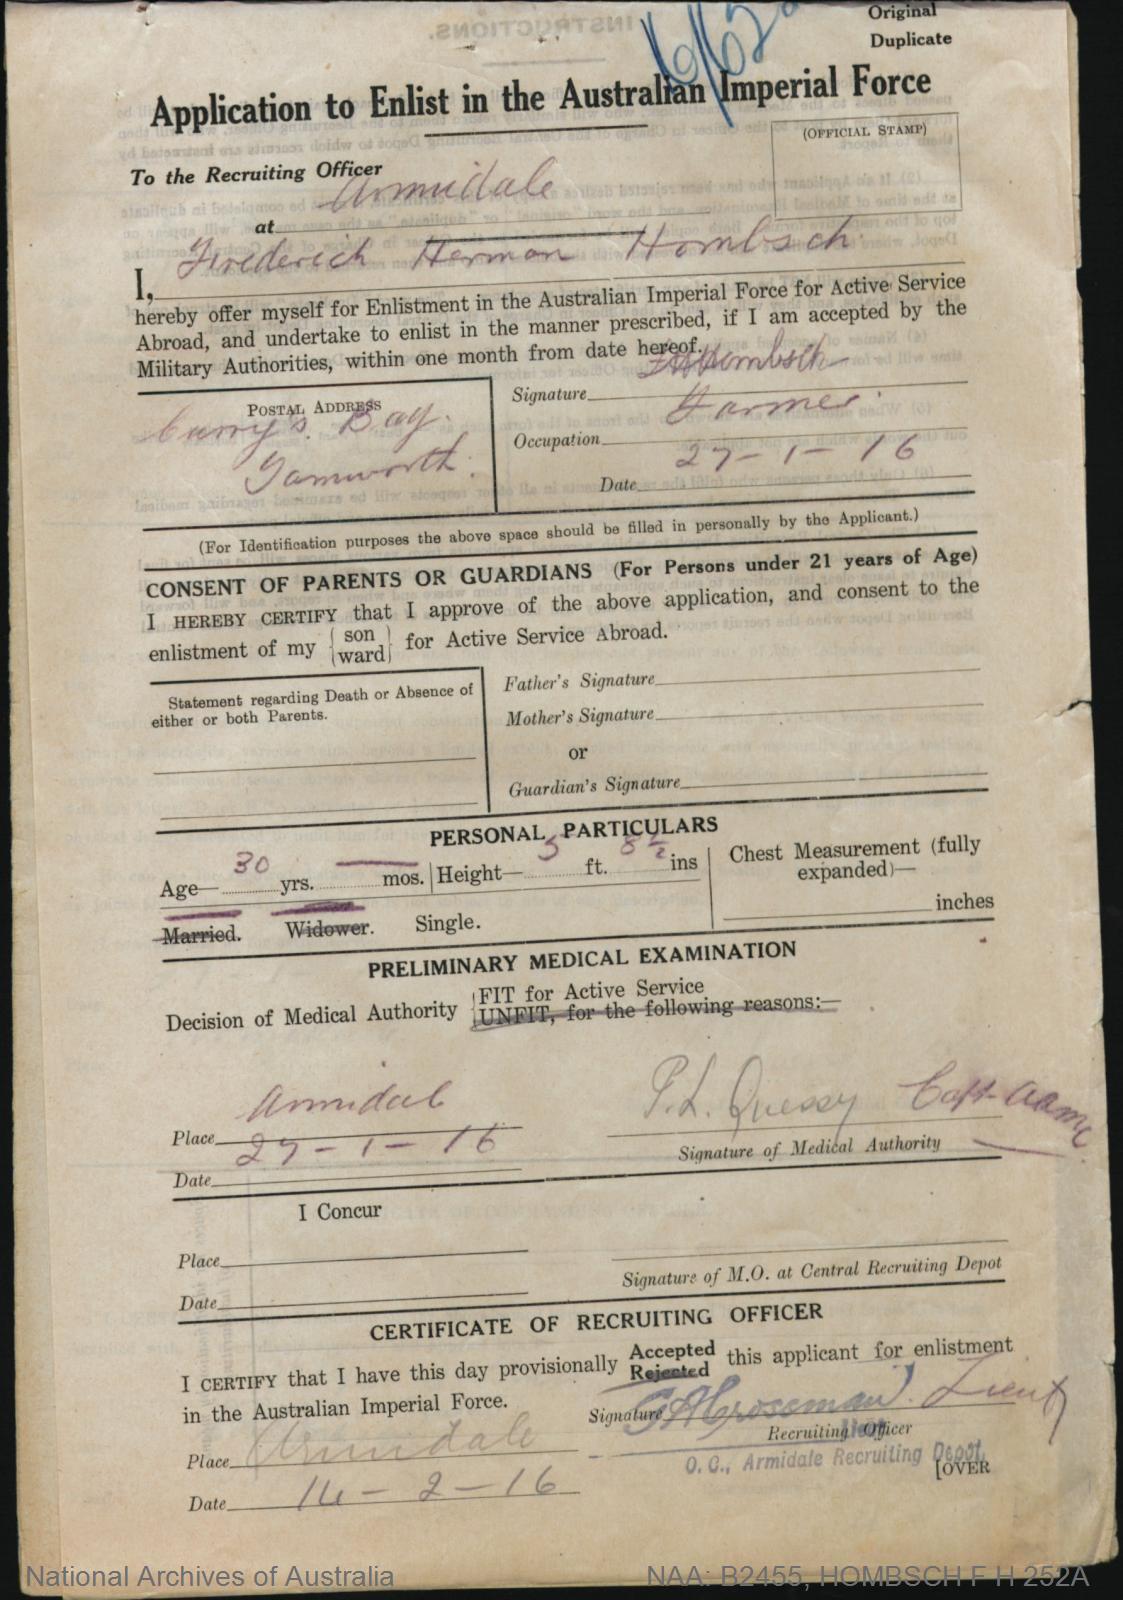 Original
Duplicate
Application to Enlist in the Australian Imperial Force
(OFFICIAL STAMP)
To the Recruiting Officer
at Armidale
I, Frederich Herman Hombsch
hereby offer myself for Enlistment in the Australian Imperial Force for Active Service
Abroad, and undertake to enlist in the manner prescribed, if I am accepted by the
Military Authorities, within one month from date hereof.
POSTAL ADDRESS
Curry's Bay.
Tamworth.
Signature FHHombsch
Occupation Farmer.
Date 27-1-16
(For Identification purposes the above space should be filled in personally by the Applicant.)
CONSENT OF PARENTS OR GUARDIANS (For Persons under 21 years of Age)
I HEREBY CERTIFY that I approve of the above application, and consent to the
enlistment of my {son ward} for Active Service Abroad.
Statement regarding Death or Absence of
either or both Parents.
Father's Signature
Mother's Signature
or
Guardian's Signature
PERSONAL PARTICULARS
Age— 30 yrs. — mos. Height— 5 ft. 8½ ins
Chest Measurement (fully
expanded)—
inches
Married. Widower. Single.
PRELIMINARY MEDICAL EXAMINATION
Decision of Medical Authority
FIT for Active Service
UNFIT, for the following reasons:—
Place Armidale
Date 27-1-16
Capt. AAMC
Signature of Medical Authority
I Concur
Place
Date
Signature of M.O. at Central Recruiting Depot
CERTIFICATE OF RECRUITING OFFICER
I CERTIFY that I have this day provisionally Accepted Rejected this applicant for enlistment
in the Australian Imperial Force.
Signature Crossman Lieut
Recruiting Officer
O. C., Armidale Recruiting Depot.
Place Armidale
Date 14-2-16
[OVER
National Archives of Australia
NAA: B2455, HOMBSCH F H 252A